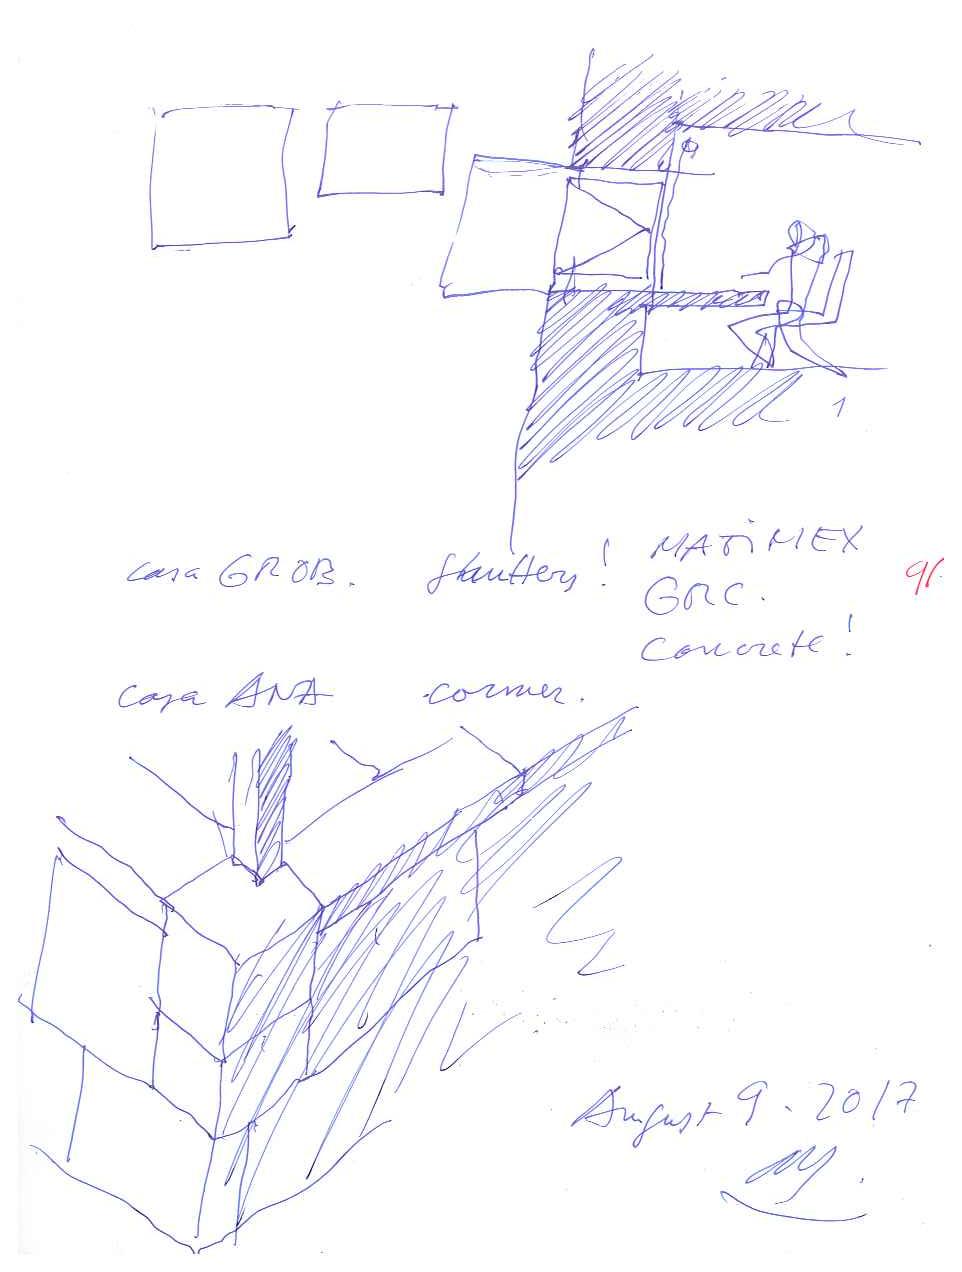 1
casa GROB. shutters! MATiMEX
GRC.
concrete!
91.
casa ANA corner.
August 9. 2017